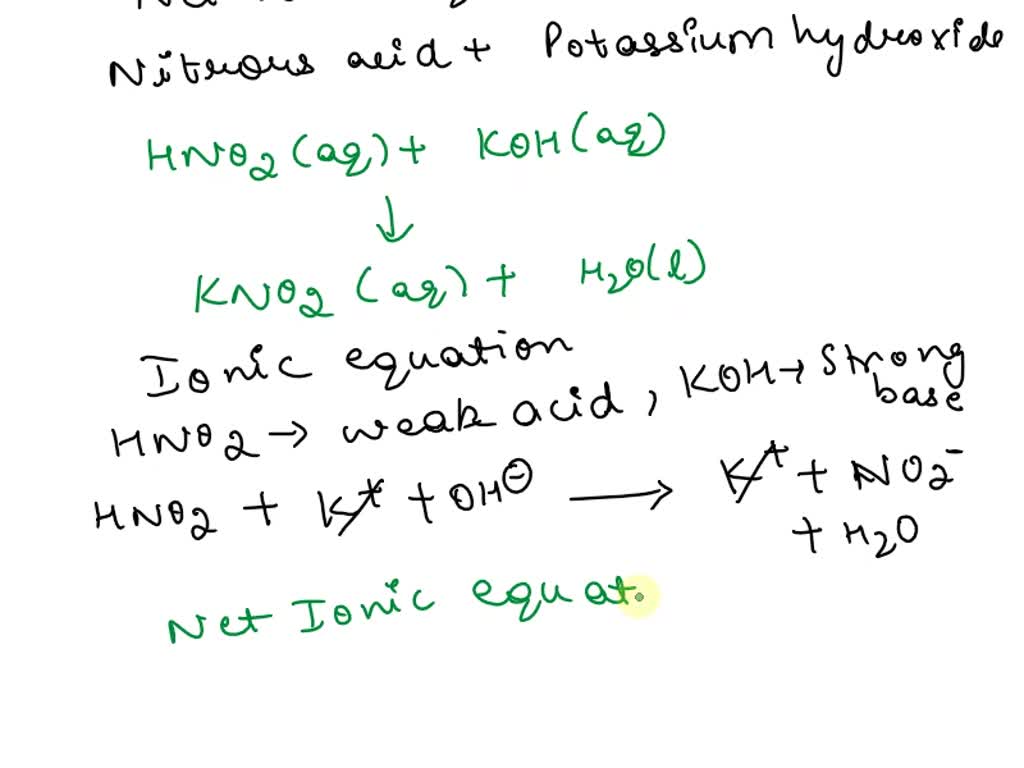 Nitrous acid + Potassium hydroxide
HNO2 (aq) + KOH (aq)
↓
KNO2 (aq) + H2O(l)
Ionic equation
HNO2 → weak acid, KOH → Strong base
HNO2 + K+ + OH⊖ → K+ + NO2-
+ H2O
Net Ionic equat